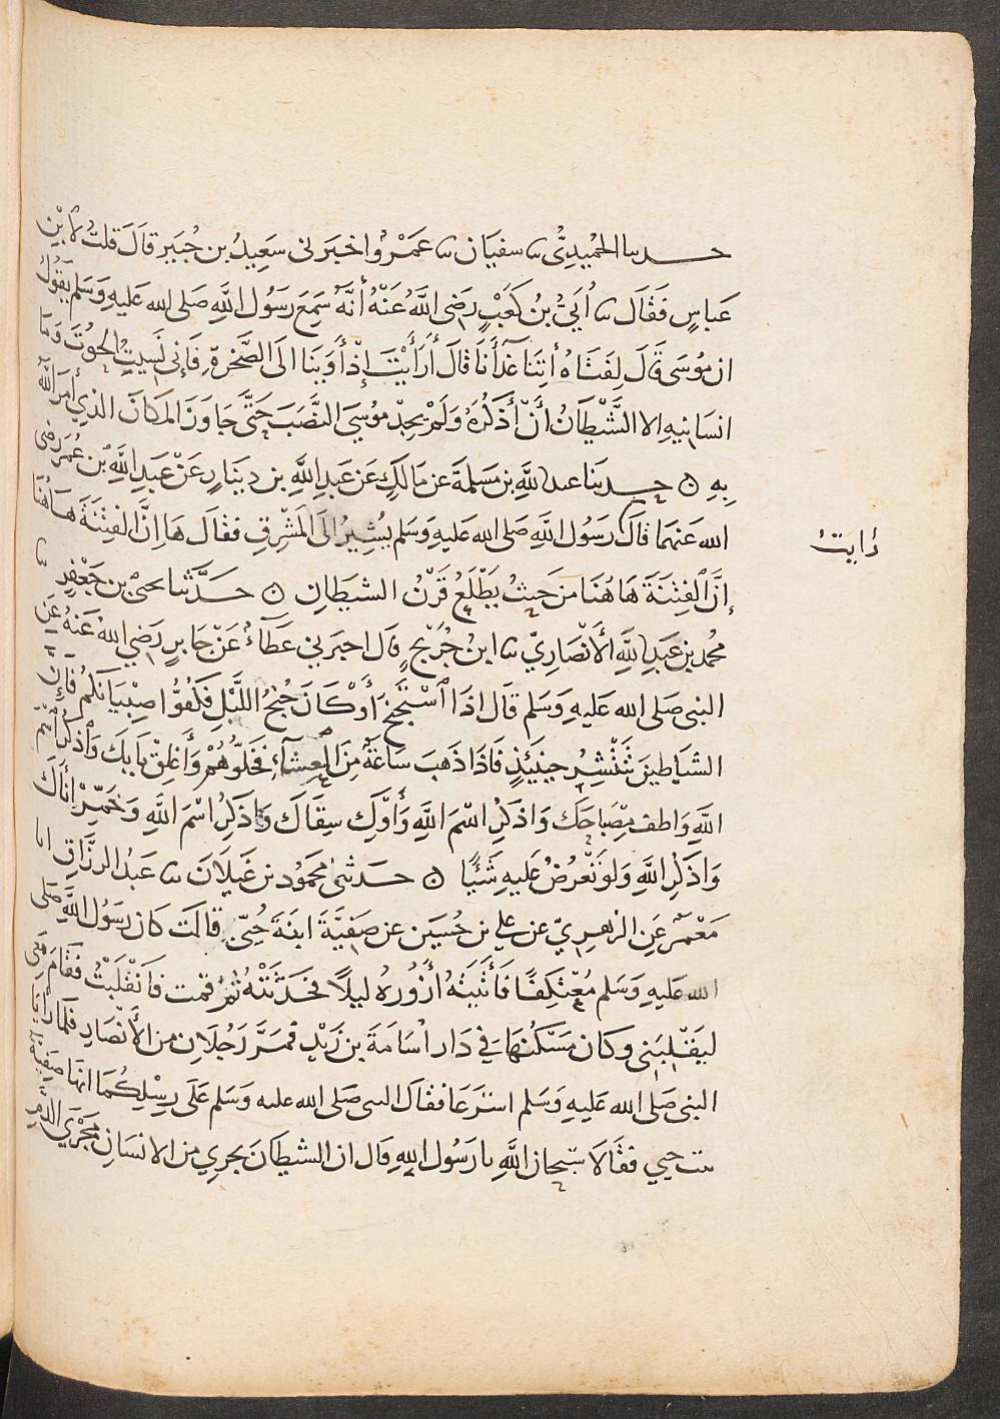 حدثنا الحُمَيْدِيُّ ثنا سفيان ثنا عَمْرٌو اخبرني سَعِيدُ بن جُبَيرٍ قَالَ قلتُ لابْنِ
عَباسٍ فَقَال ثنا أُبَيُّ بنُ كَعْبٍ رَضِى اللَّهُ عَنْهُ أَنَّهُ سَمِعَ رَسُول اللَّهِ صَلى الله عَليهِ وَسَلم يَقُولُ
ان مُوسَى قَالَ لِفَتَاهُ أتِنَا غدَاَنَا قالَ أَرَأَيْتَ إِذْ أَوَينَا الَى الصَّخرَةِ فَإني نَسِيتُ الحوُتَ وَمَا
انسَانِيهِ الا الشَّيْطَانُ أَنْ أَذكُرَهُ وَلَمْ يَجِدْ موُسَى النَّصَبَ حَتَّى جَاوَزَ المَكَانَ الذي أَمَرَ اللَّهُ
بِهِ ۝ حدثنَا عبد اللَّهِ بن مَسلمَةَ عن مَالكٍ عَن عَبدِ اللَّهِ بن دينَارٍ عَنْ عَبدِ اللَّهِ بن عُمَرَ رَضي
الله عَنهمَا قالَ رَسُول اللَّهِ صَلى الله عَليهِ وَسَلم يُشِيرُ الَى المَشْرِقِ فقَالَ هَا اِنَّ الفِتْنَةَ هَاهُنَا
رايت
إنَّ الفِتنَةَ هَاهُنَا من حَيثُ يَطْلَعُ قَرْنُ الشيطَانِ ۝ حدَّثنا يحيى بن جَعْفرٍ ثنا
محُمد بن عَبدِ اللَّهِ الأَنْصَارِيّ ثنا ابنُ جُرَيْجٍ قال اخبَرني عَطَآءٌ عَنْ جَابرٍ رَضي اللهُ عَنهُ عَنِ
النبى صَلى الله عَليهِ وَسَلم قَال اذَا اسْتَجْنَحَ أَوْ كَانَ جُنْحُ اللَّيْلِ فَكُفوُّا صِبْيَانَكُم فَاِنَّ
الشيَاطينَ تَنْتَشِرُ حِينَئِذٍ فَاذَا ذَهَبَ سَاعَةٌ مِنَ العِشَآءِ فَخَلُّوهُمْ وَأَغلِقْ بَابَكَ وَاذكُر اسْمَ
اللَّهِ وَاطفِ مِصْبَاحَكَ وَاذكُرْ اسْمَ اللَّهِ وَأَوْكِ سِقَاكَ وَاذكُرْ اسْمَ اللَّهِ وَخَمِّرْ إنَاكَ
وَاذكُرْ اللَّهِ وَلوتَعْرُضُ عَليهِ شَيْئًا ۝ حدثنى محَمُود بن غَيلَانَ ثنا عَبدُ الرزَّاقِ انا
مَعْمَرٌ عَنِ الزهرِيّ عن علي بن حُسَين عن صَفِيَّةَ ابنَةَ حُيَىٍّ قالَت كَانَ رَسُولُ اللَّهِ صَلى
الله عَليهِ وَسَلم مُعْتَكِفًا فَأتَيتُهُ أزُورُهُ لَيلًا فحَدَّثَتْهُ ثُمَّ قمت فَانْقَلَبْتُ فَقَامَ مَعِي
ليَقْلِبَنِى وكَان مَسْكُنهَا في دَار أسَامَةَ بن زَيْدٍ فمَرَّ رَجُلَانِ من الأَنْصَارِ فلما رَايَا
النبى صَلى الله عَليهِ وَسَلم اسْرَعَا فقَالَ النبى صَلى الله عليه وَسَلم عَلَى رِسْلِكُمَا انهَا صَفِيَّة
بنت حيي فقَالَا سُبحان اللَّهِ يا رَسُول اللهِ قال ان الشيطَانَ يجري من الانسَانِ مَجْرَى الدَّمِ